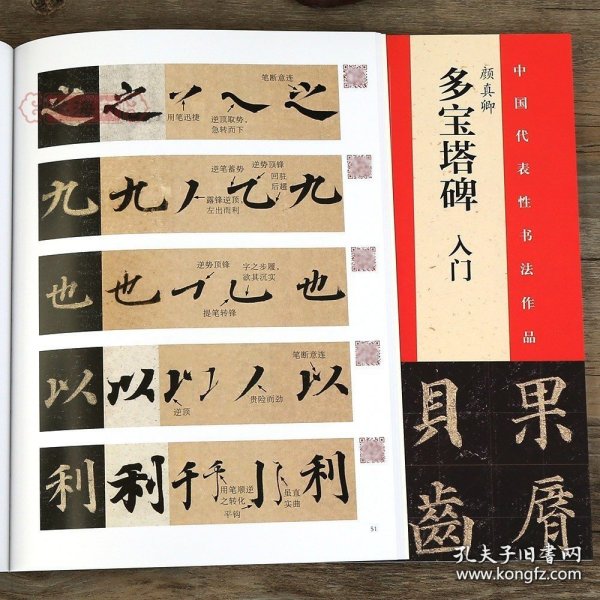 之 之 之
笔断意连
用笔迅捷
逆顶取势，
急转而下
九 九 九
逆笔蓄势
逆势顶锋
回驻
后趯
露锋逆顶，
左出而利
也 也 也
逆势顶锋
字之步履，
欲其沉实
提笔转锋
以 以 以
笔断意连
逆顶
贵险而劲
利 利 利
用笔顺逆
之转化
平钩
虽直
实曲
51
中国代表性书法作品
颜真卿
多宝塔碑 入门
果
唇
貝
齒
孔夫子旧书网
www.kongfz.com